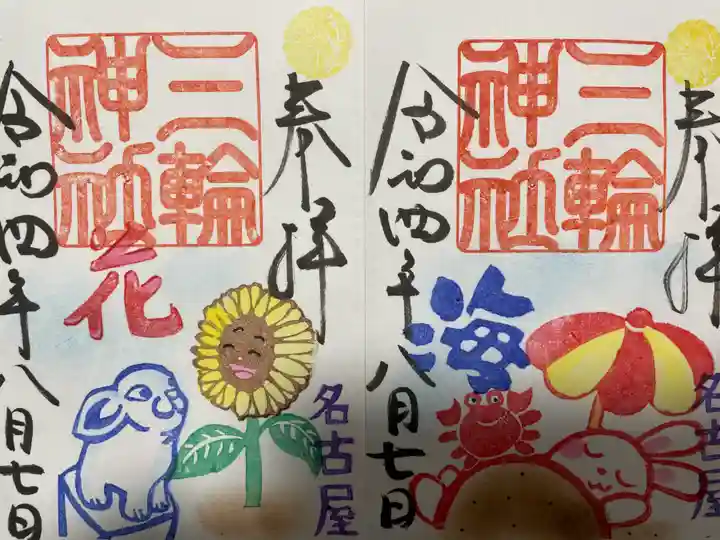 奉拝
三輪
神社
花
令和四年八月七日
名古屋
奉拝
三輪
神社
海
令和四年八月七日
名古屋